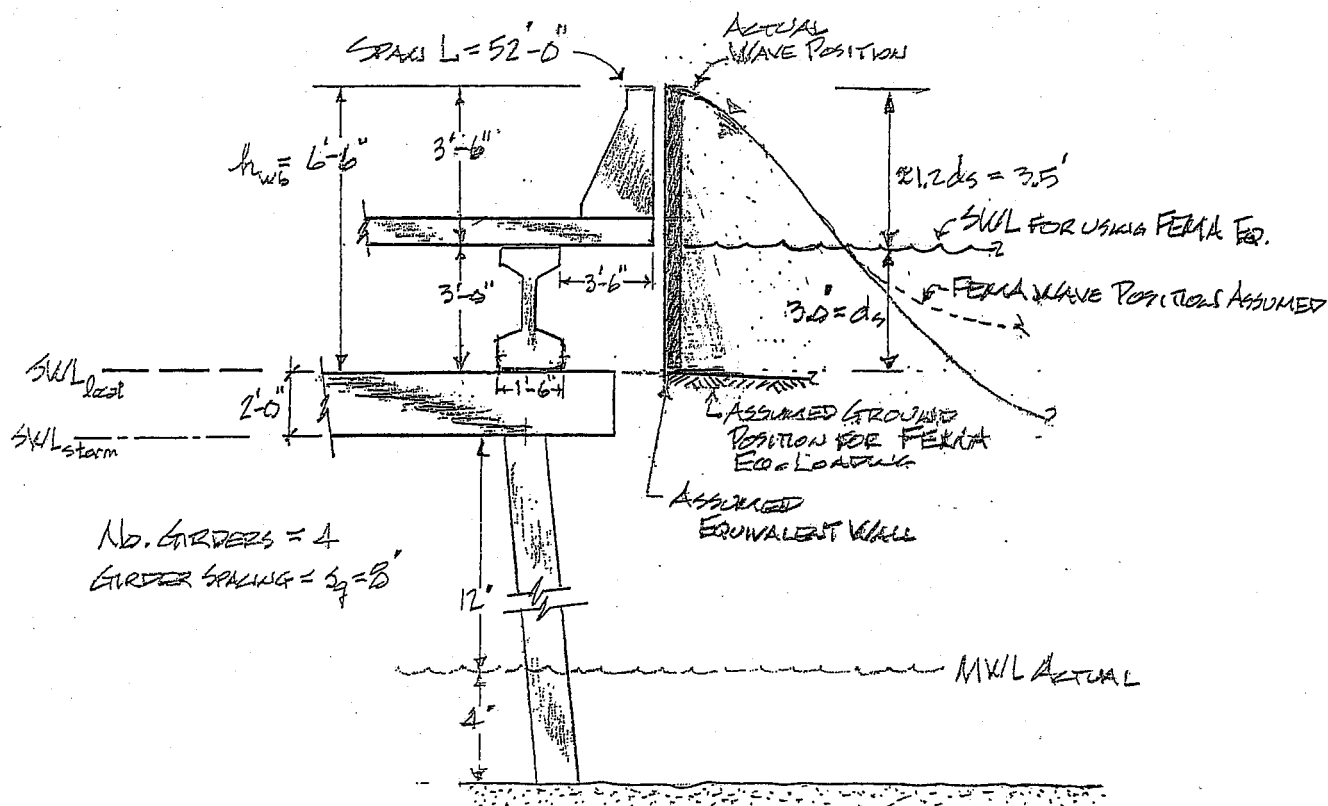 SPAN L = 52'-0"
ACTUAL
WAVE POSITION
h_wb = 6'-6"
3'-6"
≈1.2ds = 3.5'
SWL FOR USING FEMA EQ.
3'-0"
3'-6"
3.0' = ds
FEMA WAVE POSITION ASSUMED
SWL local
2'-0"
1'-6"
SWL storm
ASSUMED GROUND
POSITION FOR FEMA
EQ. LOADING
ASSUMED
EQUIVALENT WALL
No. GIRDERS = 4
GIRDER SPACING = sg = 8'
12'
MWL ACTUAL
4'